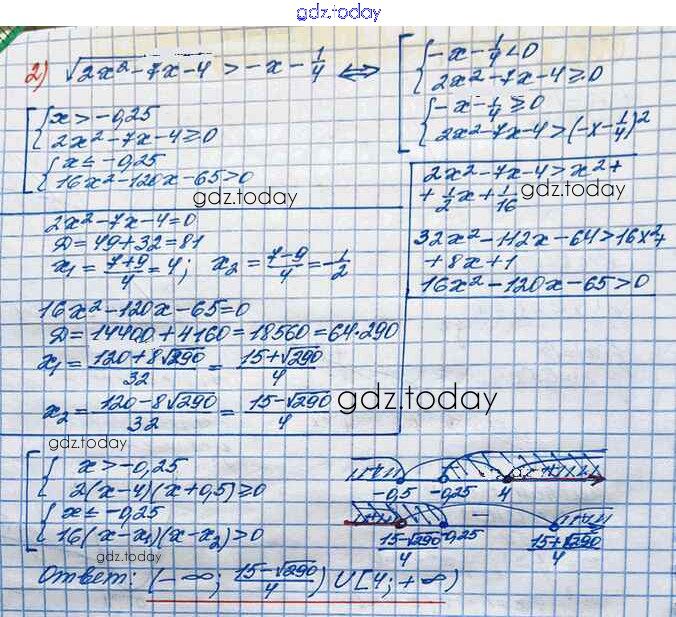 gdz.today
2) √(2x²-7x-4) > -x - 1/4 ⟺ [ { -x - 1/4 < 0
{ 2x²-7x-4 ≥ 0
{ -x - 1/4 ≥ 0
{ 2x²-7x-4 > (-x - 1/4)²
[ { x > -0,25
{ 2x²-7x-4 ≥ 0
{ x ≤ -0,25
{ 16x²-120x-65 > 0
gdz.today
2x²-7x-4 > x² +
+ 1/2 x + 1/16
gdz.today
32x²-112x-64 > 16x²+
+ 8x + 1
16x²-120x-65 > 0
2x²-7x-4=0
D = 49+32 = 81
x₁ = (7+9)/4 = 4; x₂ = (7-9)/4 = -1/2
16x²-120x-65=0
D = 14400+4160 = 18560 = 64·290
x₁ = (120+8√290)/32 = (15+√290)/4
x₂ = (120-8√290)/32 = (15-√290)/4
gdz.today
gdz.today
[ { x > -0,25
{ 2(x-4)(x+0,5) ≥ 0
{ x ≤ -0,25
{ 16(x-x₁)(x-x₂) > 0
-0,5 -0,25 4
(15-√290)/4 -0,25 (15+√290)/4
gdz.today
Ответ: (-∞; (15-√290)/4) ∪ [4; +∞)